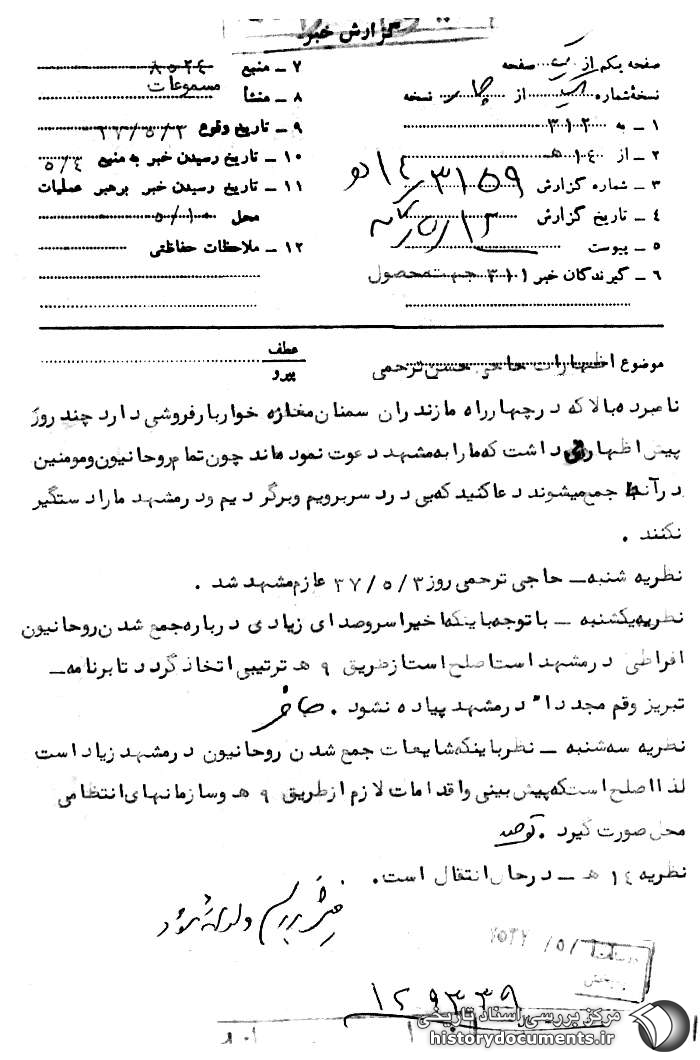 گزارش خبر
صفحه یکم از یک صفحه
نسخه شماره یک از چهار نسخه
۱ – به ۳۱۲
۲ – از ۱۴ هـ
۳ – شماره گزارش ۳۱۵۹
۴ – تاریخ گزارش
۵ – پیوست
۶ – گیرندگان خبر ۳۱۱ جهت محصول
۷ – منبع ۸۵۲۴
۸ – منشأ مسموعات
۹ – تاریخ وقوع ۳۷/۵/۳
۱۰ – تاریخ رسیدن خبر به منبع ۵/۴
۱۱ – تاریخ رسیدن خبر برهبر عملیات
محل ۵/۱۰
۱۲ – ملاحظات حفاظتی
موضوع اظهارات حاجی حسن ترحمی
عطف
پیرو
نامبرده بالا که در چهارراه مازندران سمنان مغازه خواربارفروشی دارد چند روز
پیش اظهار میداشت که ما را به مشهد دعوت نموده اند چون تمام روحانیون و مومنین
در آنجا جمع میشوند دعا کنید که بی درد سر برویم و برگردیم و در مشهد ما را دستگیر
نکنند .
نظریه شنبه – حاجی ترحمی روز ۳۷/۵/۳ عازم مشهد شد .
نظریه یکشنبه – با توجه باینکه اخیرا سر و صدای زیادی درباره جمع شدن روحانیون
افراطی در مشهد است اصلح است از طریق ۹ هـ ترتیبی اتخاذ گردد تا برنامه –
تبریز و قم مجددا در مشهد پیاده نشود .
نظریه سه شنبه – نظر باینکه شایعات جمع شدن روحانیون در مشهد زیاد است
لذا اصلح است که پیش بینی و اقدامات لازم از طریق ۹ هـ و سازمانهای انتظامی
محل صورت گیرد .
نظریه ۱۴ هـ – در حال انتقال است .
۱۲۹۳۳۹
مرکز بررسی اسناد تاریخی
historydocuments.ir